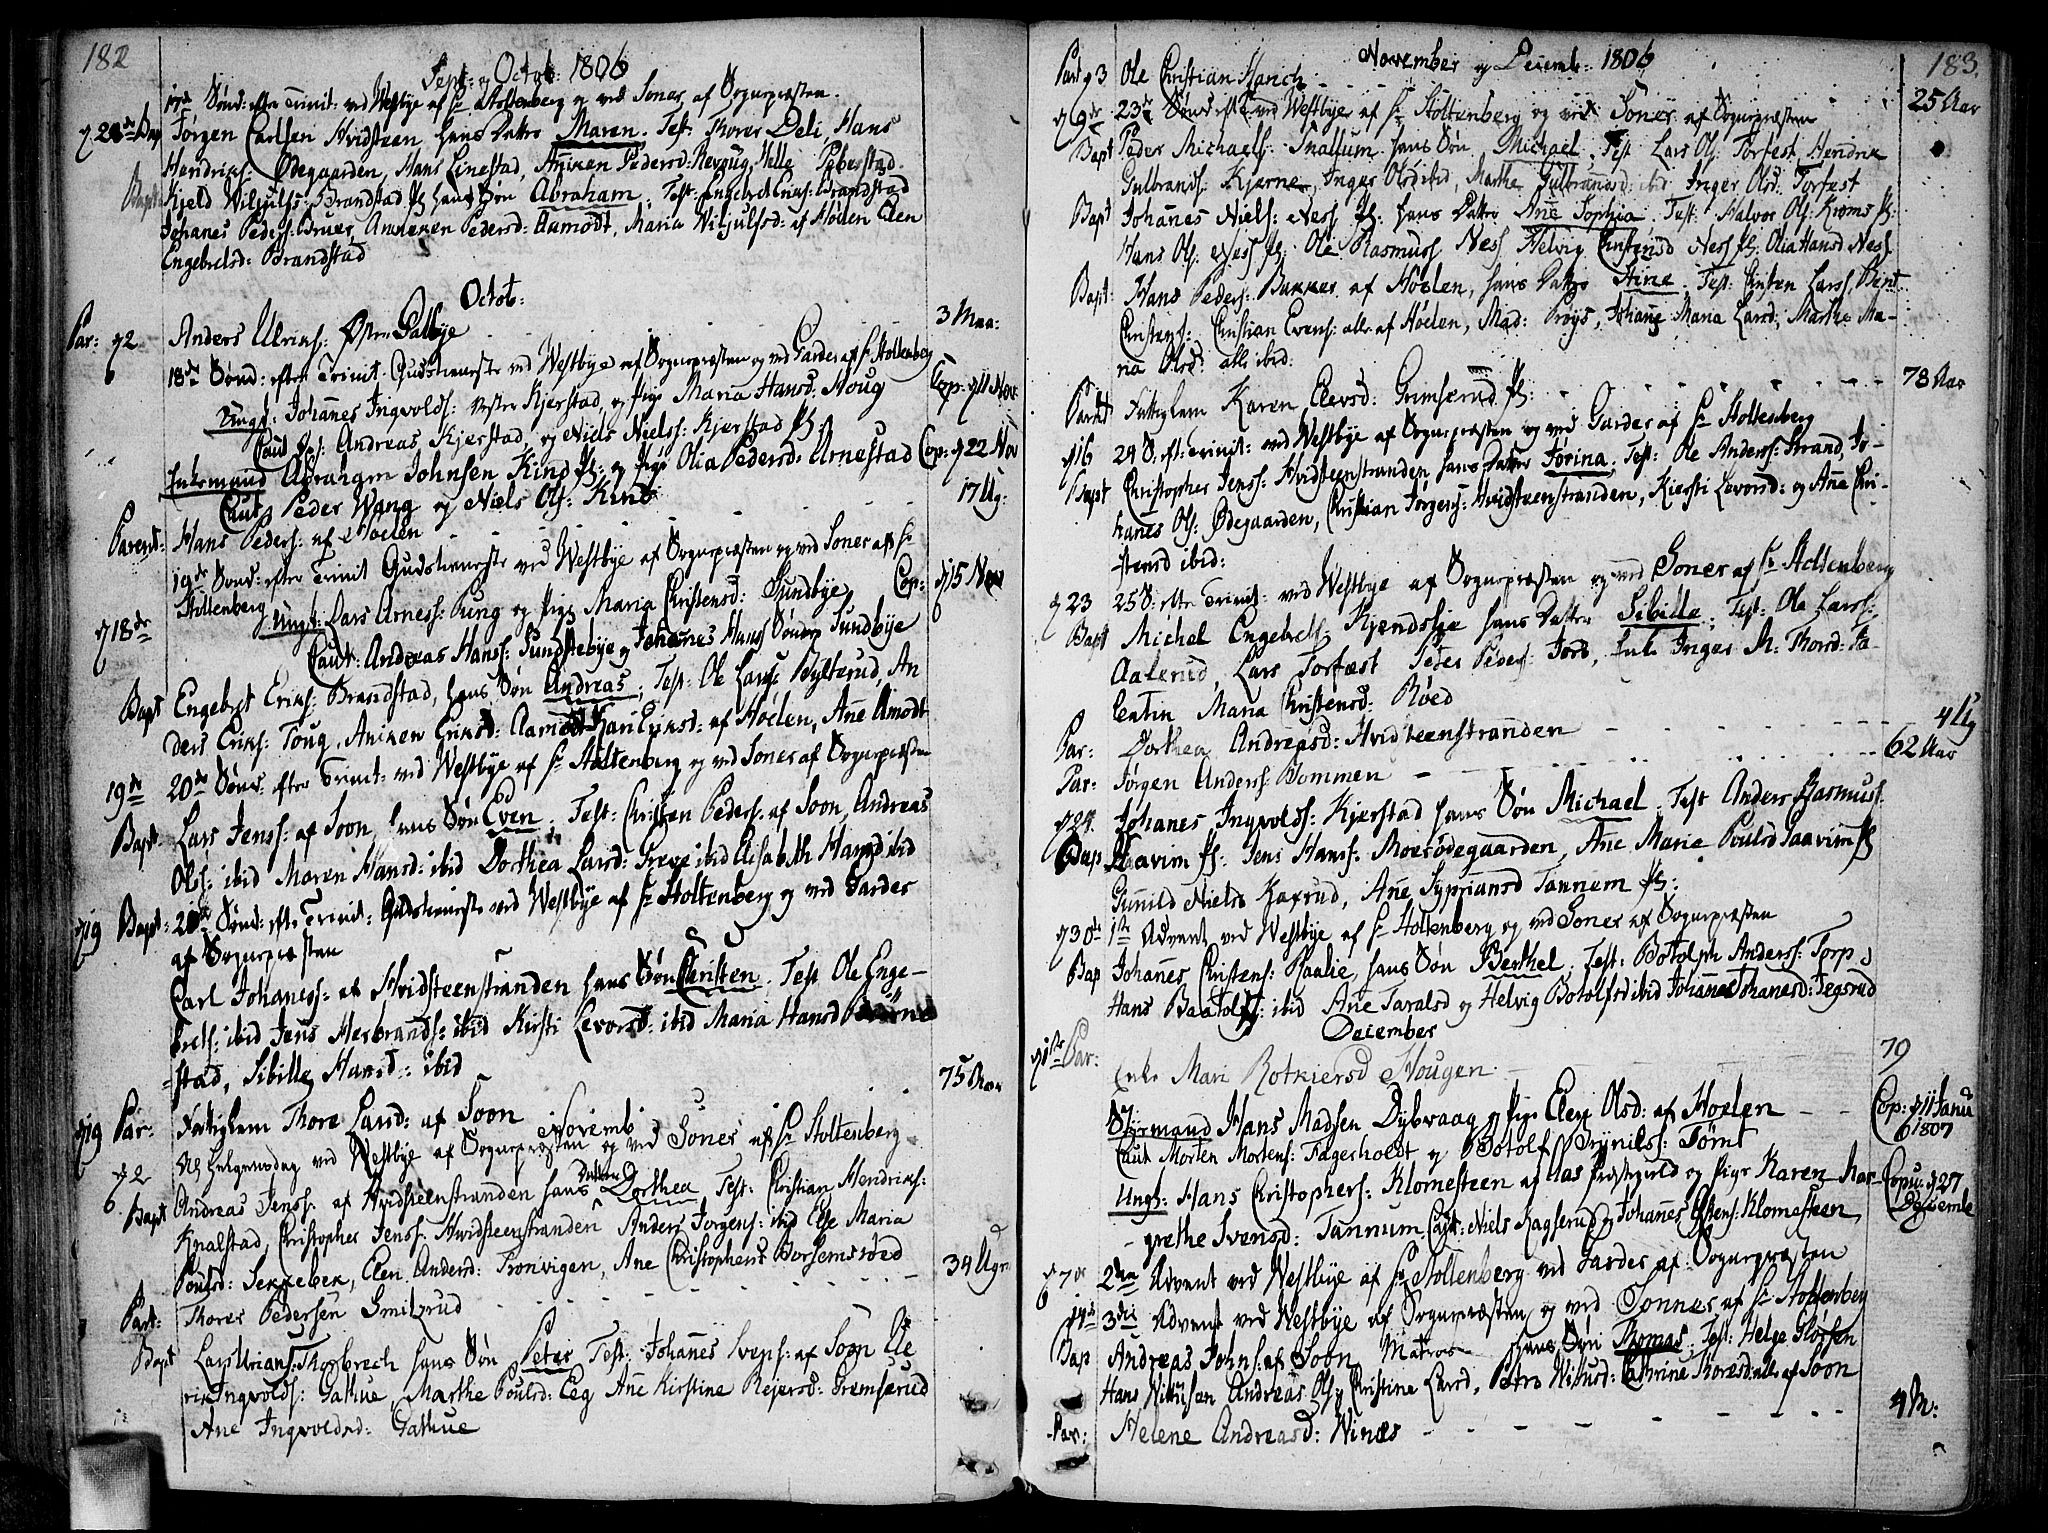 182
Sept: og Octob: 1806
17de Sønd: efter Trinit: ved Westbye af Hr Stoltenberg og ved Soner af Sognepræsten.
Jørgen Carlsen Hvidsteen hans Datter Maren. Test: Thorer Deli, Hans
Hendriks: Ødegaarden, Hans Linestad, Aniken Pedersd: Revoug, Helle Peberstad.
Bapt Kjeld Wiljulfs: Brandstad Pl: hans Søn Abraham. Test: Engebret Enes: Brandstad
Johanes Peders: Bruer, Anneken Pedersd: Aamodt, Maria Wiljulfsd: af Høelen Elen
Engebretsd: Brandstad
Octob:
Par: d 2 Anders Ulrichs: Østre Galbye 3 Maa:
18de Sønd: efter Trinit. Gudstieneste ved Westbye af Sognepræsten og ved Garder af Hr Stoltenberg
Ungk: Johanes Ingvolds: Vestre Kjerstad, og Pige Maria Hansd: Houg Cop: d 11 Nov
Caut Andreas Kjerstad, og Niels Niels: Kjerstad Pl:
Enkemand Abraham Johnsen Kind Pl: og Pige Olia Pedersd: Arnestad Cop: d 22 Nov
Caut, Peder Wang og Niels Ols: Kind 17 Ug:
Parent: Hans Peders: af Høelen
19de Sønd: efter Trinit Gudstieneste ved Westbye af Sognepræsten og ved Soner af Hr
Stoltenberg
d 18de Ungk: Lars Arnes: Pung og Pige Maria Christensd: Sundbye Cop: d 15 Nov
Caut: Andreas Hans: Sundstebye og Johannes Hans: Søndre Sundbye
Bapt Engebret Eriks: Brandstad, hans Søn Andreas, Test: Ole Lars: Bylterud, An
ders Eriks: Toug, Aniken Eriksd: Aamodt Kari Eriksd: af Høelen, Ane Amodt
19de 20de Sønd: efter Trinit: ved Westbye af Hr Stoltenberg og ved Soner af Sognepræsten
Bapt. Lars Jenss: af Soon, hans Søn Even. Test: Christen Peders: af Soon, Andreas
Ols: ibid Maren Hansd: ibid Dorthea Larsd: Greve ibid Elisabeth Hansd ibid
d 19 Bapt: 20de Sønd: efter Trinit: Gudstieneste ved Westbye af Hr Stoltenberg og ved Garder
af Sognepræsten
Carl Johaness: af Hvidsteenstranden hans Søn Christen. Test Ole Enge-
brets: ibid Jens Herbrands: ibid Kirsti Levorsd: ibid Maria Hansd
stad, Sibille Hansd: ibid
d 19 Par: Fattiglem Thore Larsd: af Soon 75 Aar
Novemb
d 2 All helgensdag ved Westbye af Sognepræsten og ved Soner af Hr Stoltenberg
Bapt Andreas Jenss: af Hvidsteenstranden hans Datter Dorthea Test: Christian Hendriks:
Knalstad, Christopher Jenss: Hvidsteenstranden Anders Jorgens: ibid Else Maria
Poulsd: Sekkebek, Elen Andersd: Tronvigen, Ane Christophersd Borsemsrøed
Part: Thorer Pedersen Smilerud 34 Ugr
Bapt Lars Urians: Thorbrech hans Søn Peter Test: Johanes Svens: af Soon Ule
rik Ingvolds: Gathue, Marthe Poulsd: Eeg Ane Kirstine Rejersd: Gremserud
Ane Ingvoldsd: Gathue
183.
November og Decemb: 1806
Part d 3 Ole Christian Hanch 25 Aar
d 9de 23de Sønd efter ved Westbye af Hr Stoltenberg og ved Soner af Sognepræsten
Bapt Peder Michaels: Snallum hans Søn Michael. Test Lars Ols: Torfest Hendrik
Gulbrands: Kjerne, Inger Olsd ibid, Marthe Gulbransd: ibid Inger Olsd: Torfest
Bapt Johanes Niels: Ness Pl: hans Datter Ane Sophia. Test: Halvor Ols: Kroms Pl:
Hans Ols: Ness Pl: Ole Rasmuss: Ness Helvig Christensd Ness Pl: Olia Hansd Ness
Bapt: Hans Peders: Bakker af Høelen, hans Datter Stine. Test: Christen Lars:, Bent
Christens: Christian Evens: alle af Høelen, Mad: Prøys, Johane Maria Larsd: Marthe Ma-
ria Olsd: alle ibid:
Parent Fattiglem Karen Elevsd: Grimserud Pl: 78 Aar
d 16 24 S: eft: Trinit: ved Westbye af Sognepræsten og ved Garder af Hr Stoltenberg
Bapt Christopher Jenss: Hvidsteenstranden hans Datter Jørina, Test: Ole Anders: Strand, Jo-
hanes Ols: Ødegaarden, Christian Jørgens: Hvidsteenstranden, Kiersti Levorsd: og Ane Chri-
stensd ibid:
d 23 25 S: efter Trinit: ved Westbye af Sognepræsten og ved Soner af Hr Stoltenberg
Bapt Michel Engebrets: Kjendslie hans Datter Sibille, Test: Ole Lars:
Aaterud, Lars Torfæst Peder Peders: Jord, Enke Inger M: Thord: Ja-
centin Maria Christensd: Røed
Par: Dorthea Andreasd: Hvidsteenstranden 4 Ug
Par: Jørgen Anders: Bommen 62 Aar
d 24. Johanes Ingvolds: Kjerstad hans Søn Michael. Test Anders Rasmuss:
Bap Taavim Pl: Jens Hans: Moersødegaarden, Ane Marie Poulsd Saavim Pl
Gunild Nielsd Kaxrud, Ane Sypriansd Tannem Pl:
d 30de 1ste Advent ved Westbye af Hr Stoltenberg og ved Soner af Sognepræsten
Bap Johanes Christens: Raalie, hans Søn Berthel, Test: Botolph Anders: Torp
Hans Baatolfs: ibid Ane Taralsd og Helvig Botolfsd ibid Johannes Johanesd: Jegsrud
December
d 1ste Par: Enke Mari Rotkiersd Hougen 79
Styrmand Hans Madsen Dybvaag og Pige Elen Olsd: af Hoelen Cop: d 11 Janu
Caut Morten Mortens: Fagerholdt og Botolf Brynils: Tømt 1807
Ungk: Hans Christophers: Klomesteen af Aas Præstegield og Pige Karen Mar- Copu: d 27
grethe Svensd: Tannum. Caut: Niels Kagserud og Johanes Ostens: Klomesteen Decemb
d 7de 2den Advent ved Westbye af Hr Stoltenberg ved Garder af Sognepræsten
14de 3die Advent ved Westbye af Sognepræsten og ved Sonner af Hr Stoltenberg
Bap Andreas Johns: af Soon Matros hans Søn Thomas, Test: Helge Thorsen
Hans Nilsen Andreas Ols: Christine Larsd, Petra Nilusd: Cathrine Thoresd: alle af Soon
Par: Helene Andreasd: Winæs 4 M: